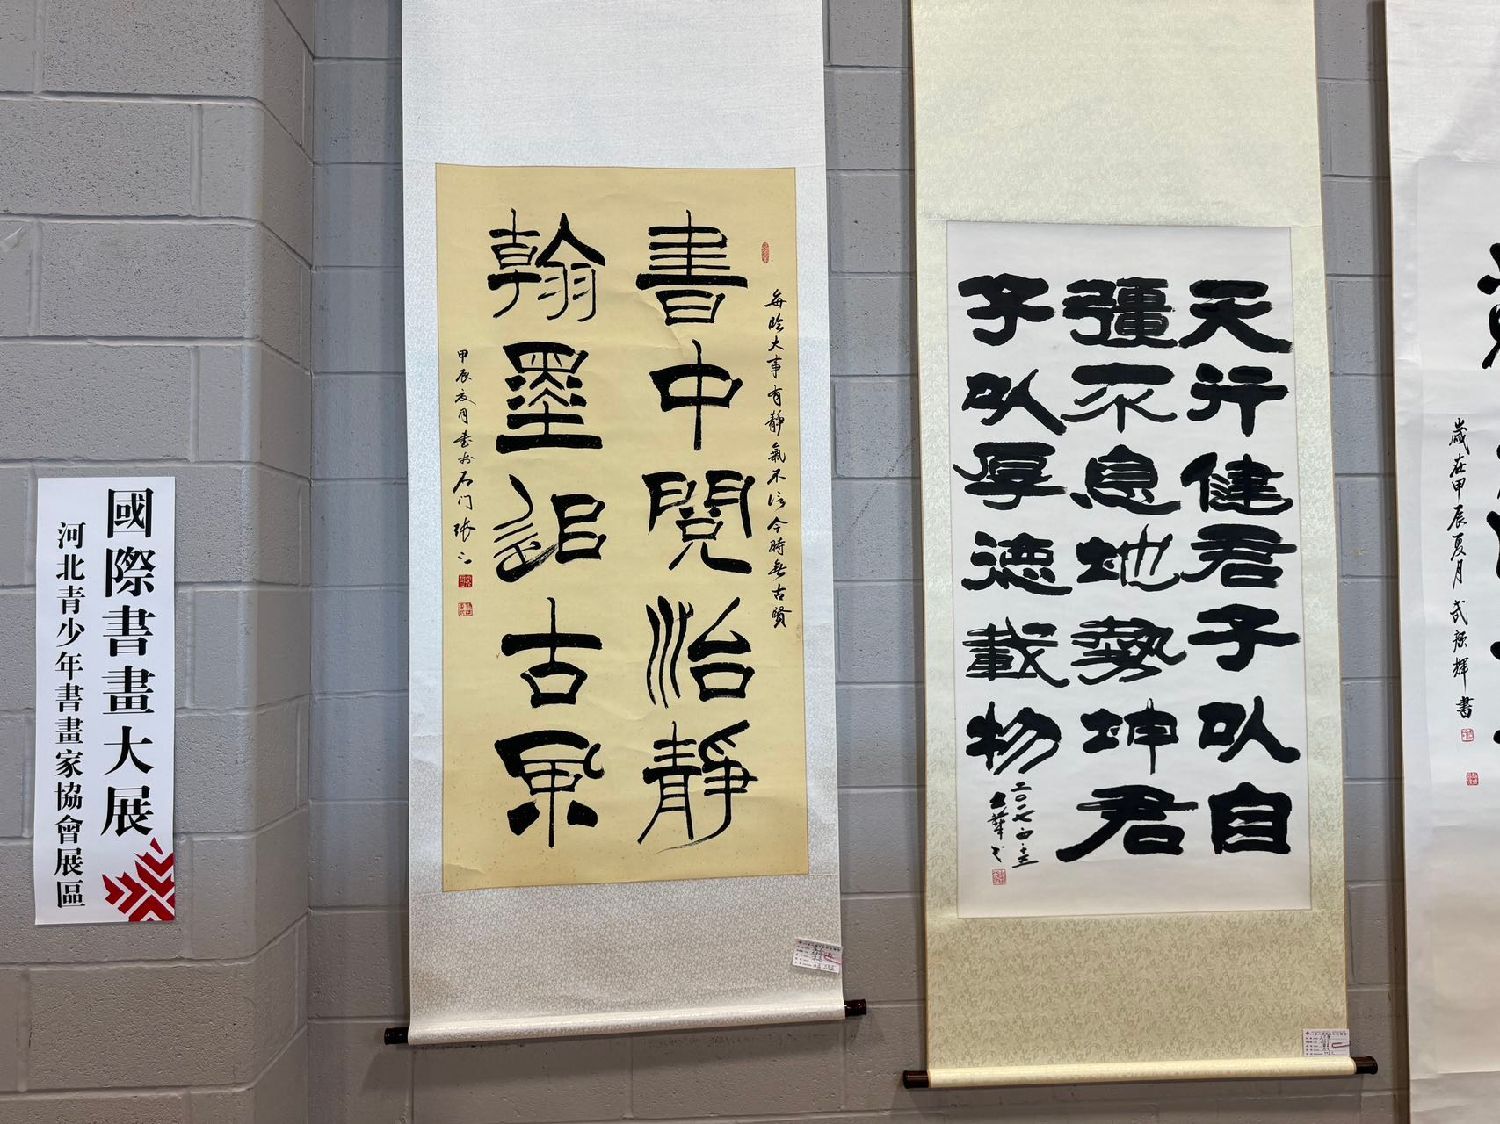 國際書畫大展
河北青少年書畫家協會展區
每臨大事有静氣不信今時無古賢
書中閱治靜
翰墨追古風
甲辰夏月書於石门張
天行健君子以自
彊不息地勢坤君
子以厚德載物
二〇一七
歲在甲辰夏月武
輝書